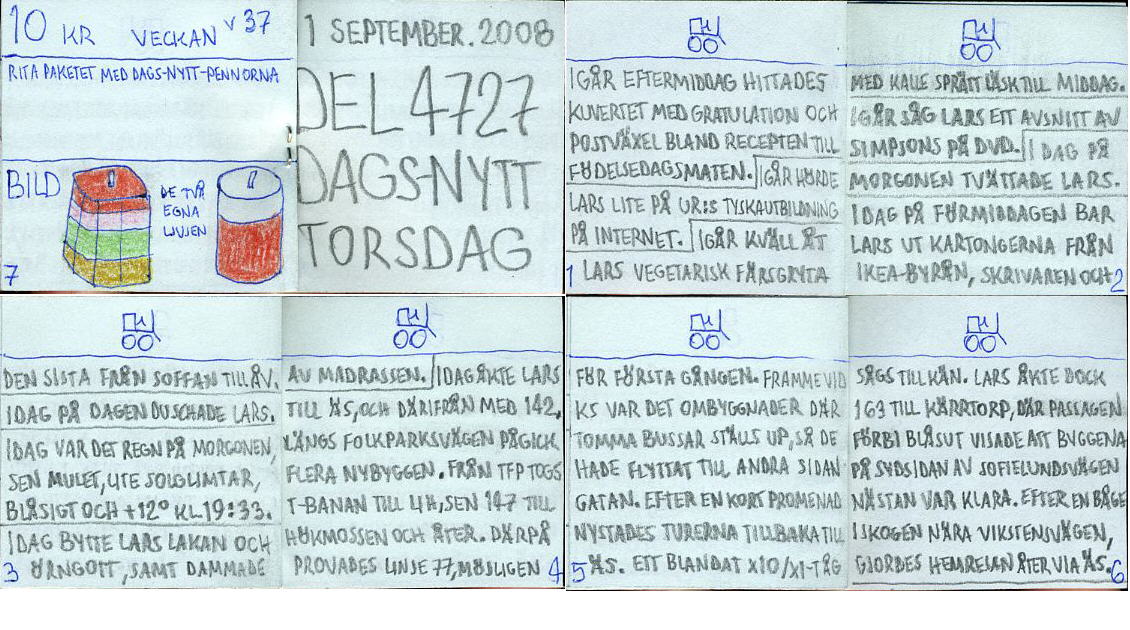 10 KR VECKAN v 37
RITA PAKETET MED DAGS-NYTT-PENNORNA
BILD
DE TVÅ
EGNA
LINJEN
7
1 SEPTEMBER. 2008
DEL 4727
DAGS-NYTT
TORSDAG
IGÅR EFTERMIDDAG HITTADES
KUVERTET MED GRATULATION OCH
POSTVÄXEL BLAND RECEPTEN TILL
FÖDELSEDAGSMATEN. IGÅR HÖRDE
LARS LITE PÅ UR:S TYSKAUTBILDNING
PÅ INTERNET. IGÅR KVÄLL ÅT
1 LARS VEGETARISK FÄRSGRYTA
MED KALLE SPRÄTT LÄSK TILL MIDDAG.
IGÅR SÅG LARS ETT AVSNITT AV
SIMPSONS PÅ DVD. I DAG PÅ
MORGONEN TVÄTTADE LARS.
IDAG PÅ FÖRMIDDAGEN BAR
LARS UT KARTONGERNA FRÅN
IKEA-BYRÅN, SKRIVAREN OCH 2
DEN SISTA FRÅN SOFFAN TILL ÅV.
IDAG PÅ DAGEN DUSCHADE LARS.
IDAG VAR DET REGN PÅ MORGONEN,
SEN MULET, LITE SOLGLIMTAR,
BLÅSIGT OCH +12° KL 19:33.
IDAG BYTTE LARS LAKAN OCH
3 ÖRNGOTT, SAMT DAMMADE
AV MADRASSEN. IDAG ÅKTE LARS
TILL ÄS, OCH DÄRIFRÅN MED 142,
LÄNGS FOLKPARKSVÄGEN PÅGICK
FLERA NYBYGGEN. FRÅN TFP TOGS
T-BANAN TILL LIH, SEN 147 TILL
HÖKMOSSEN OCH ÅTER. DÄRPÅ
PROVADES LINJE 77, MÖJLIGEN 4
FÖR FÖRSTA GÅNGEN. FRAMME VID
KS VAR DET OMBYGGNADER DÄR
TOMMA BUSSAR STÄLLS UPP, SÅ DE
HADE FLYTTAT TILL ANDRA SIDAN
GATAN. EFTER EN KORT PROMENAD
NYSTADES TURERNA TILLBAKA TILL
5 ÄS. ETT BLANDAT X10/X1-TÅG
SÅGS TILL KÄN. LARS ÅKTE DOCK
163 TILL KÄRRTORP, DÄR PASSAGEN
FÖRBI BLÅSUT VISADE ATT BYGGENA
PÅ SYDSIDAN AV SOFIELUNDSVÄGEN
NÄSTAN VAR KLARA. EFTER EN BÅGE
I SKOGEN NÄRA VIKSTENSVÄGEN,
GJORDES HEMRESAN ÅTER VIA ÄS. 6